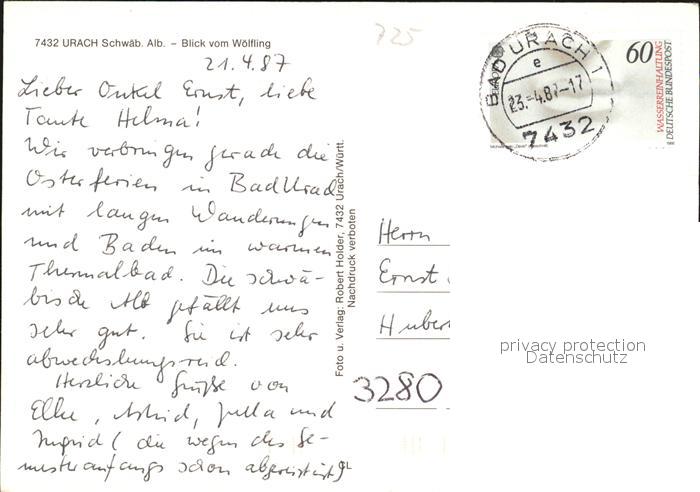 7432 URACH Schwäb. Alb. – Blick vom Wölfling
725
21.4.87
Lieber Onkel Ernst, liebe
Tante Helma!
Wir verbringen gerade die
Osterferien in Bad Urach
mit langen Wanderungen
und Baden im warmen
Thermalbad. Die schwä-
bische Alb gefällt uns
sehr gut. Sie ist sehr
abwechslungsreich.
Herzliche Grüße von
Elke, Astrid, Jutta und
Ingrid (die wegen des Se-
mesteranfangs schon abgereist ist)
Foto u. Verlag: Robert Holder, 7432 Urach/Württ.
Nachdruck verboten
BAD URACH 1
e
23.-4.87-17
7432
60
WASSERREINHALTUNG
DEUTSCHE BUNDESPOST
Herrn
Ernst
Hubert
3280
privacy protection
Datenschutz